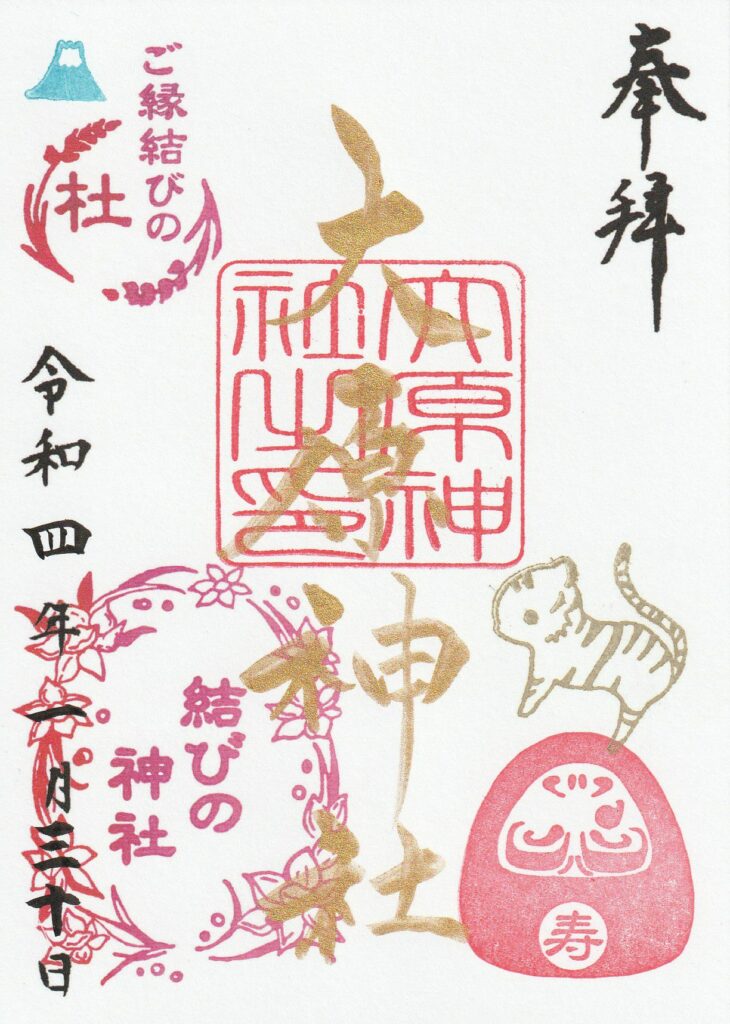 奉拝
大原神社
大原神
社之印
ご縁結びの
杜
令和四年一月三十日
結びの
神社
寿